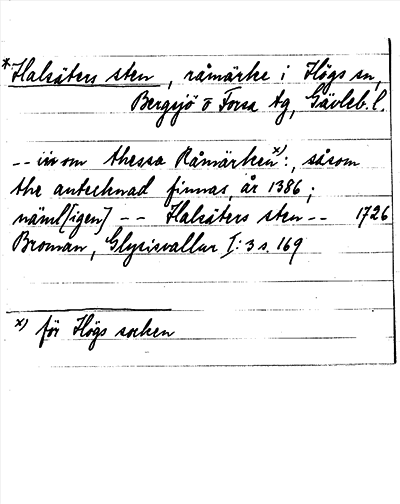 *Halsäters sten, råmärke i Högs sn,
Bergsjö o Forsa tg, Gävleb. l.
-- inom thessa Råmärken x): , såsom
the antecknad finnas, år 1386;
näml[igen] -- Halsäters sten -- 1726
Broman, Glysisvallur I: 3 s. 169
x) för Högs socken